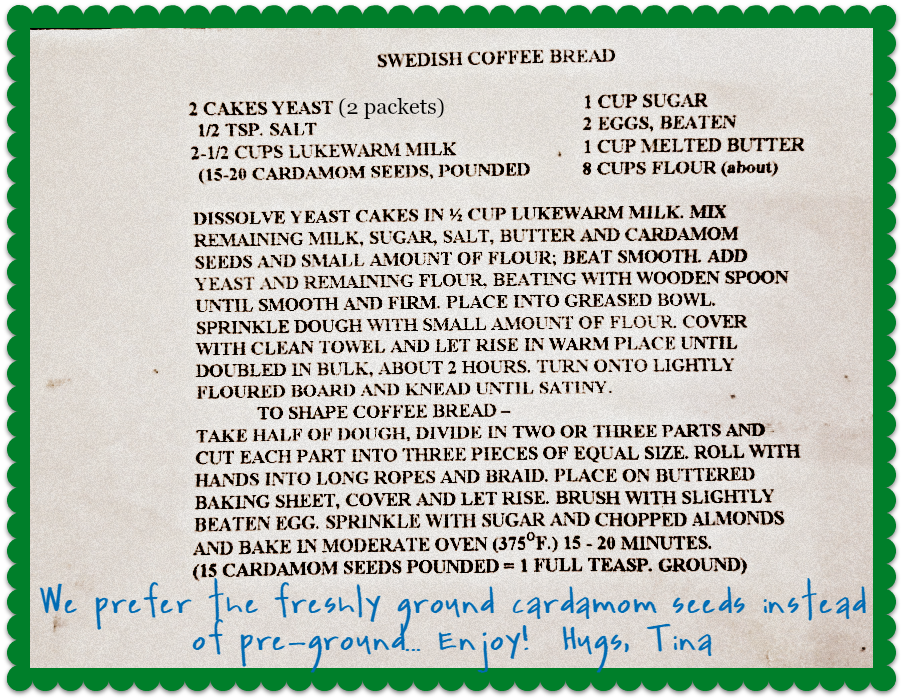 SWEDISH COFFEE BREAD
2 CAKES YEAST (2 packets)
1/2 TSP. SALT
2-1/2 CUPS LUKEWARM MILK
(15-20 CARDAMOM SEEDS, POUNDED
1 CUP SUGAR
2 EGGS, BEATEN
1 CUP MELTED BUTTER
8 CUPS FLOUR (about)
DISSOLVE YEAST CAKES IN ½ CUP LUKEWARM MILK. MIX
REMAINING MILK, SUGAR, SALT, BUTTER AND CARDAMOM
SEEDS AND SMALL AMOUNT OF FLOUR; BEAT SMOOTH. ADD
YEAST AND REMAINING FLOUR, BEATING WITH WOODEN SPOON
UNTIL SMOOTH AND FIRM. PLACE INTO GREASED BOWL.
SPRINKLE DOUGH WITH SMALL AMOUNT OF FLOUR. COVER
WITH CLEAN TOWEL AND LET RISE IN WARM PLACE UNTIL
DOUBLED IN BULK, ABOUT 2 HOURS. TURN ONTO LIGHTLY
FLOURED BOARD AND KNEAD UNTIL SATINY.
TO SHAPE COFFEE BREAD –
TAKE HALF OF DOUGH, DIVIDE IN TWO OR THREE PARTS AND
CUT EACH PART INTO THREE PIECES OF EQUAL SIZE. ROLL WITH
HANDS INTO LONG ROPES AND BRAID. PLACE ON BUTTERED
BAKING SHEET, COVER AND LET RISE. BRUSH WITH SLIGHTLY
BEATEN EGG. SPRINKLE WITH SUGAR AND CHOPPED ALMONDS
AND BAKE IN MODERATE OVEN (375°F.) 15 - 20 MINUTES.
(15 CARDAMOM SEEDS POUNDED = 1 FULL TEASP. GROUND)
We prefer the freshly ground cardamom seeds instead
of pre-ground... Enjoy! Hugs, Tina